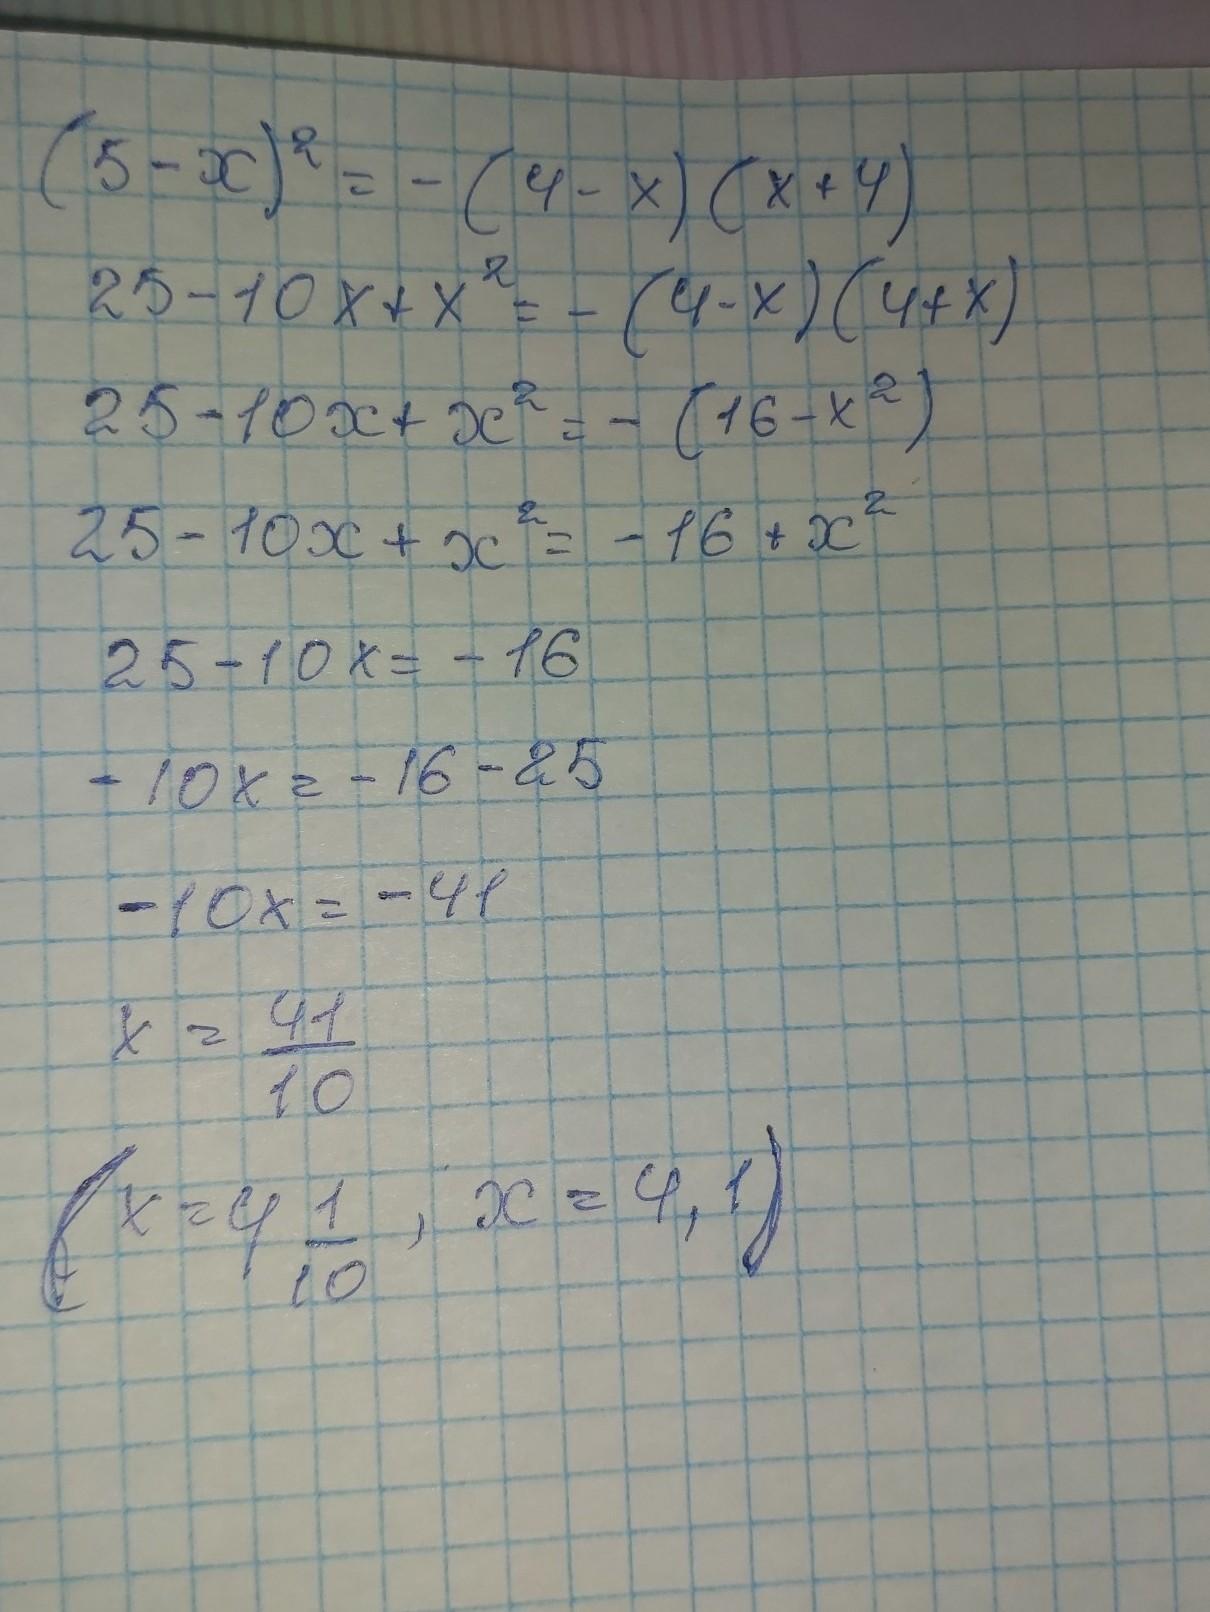 (5-x)² = -(4-x)(x+4)
25-10x+x² = -(4-x)(4+x)
25-10x+x² = -(16-x²)
25-10x+x² = -16+x²
25-10x = -16
-10x = -16-25
-10x = -41
x = 41/10
(x = 4 1/10, x = 4,1)